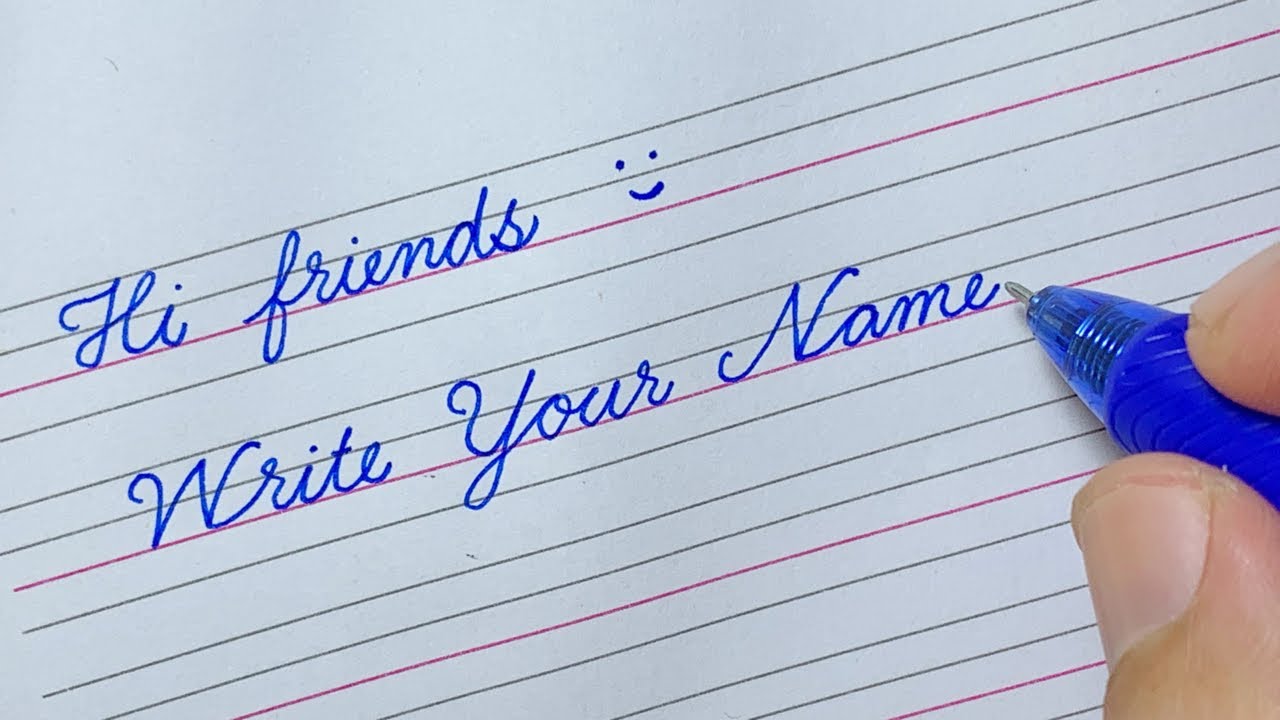 Hi friends :)
Write Your Name